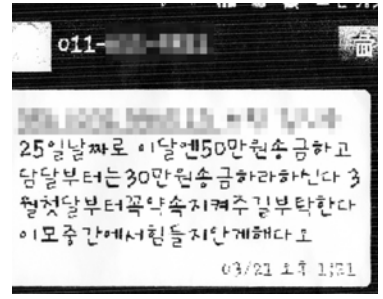 011-
25일날짜로 이달엔50만원송금하고
담달부터는30만원송금하라하신다 3
월첫달부터꼭약속지켜주길부탁한다
이모중간에서힘들지안게해다오
03/21 오후 1:31